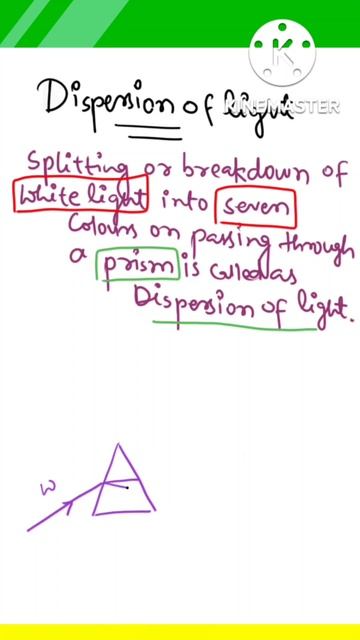 Dispersion of light
K
KINEMASTER
Splitting or breakdown of
White light into seven
Colours on passing through
a prism is called as
Dispersion of light.
W